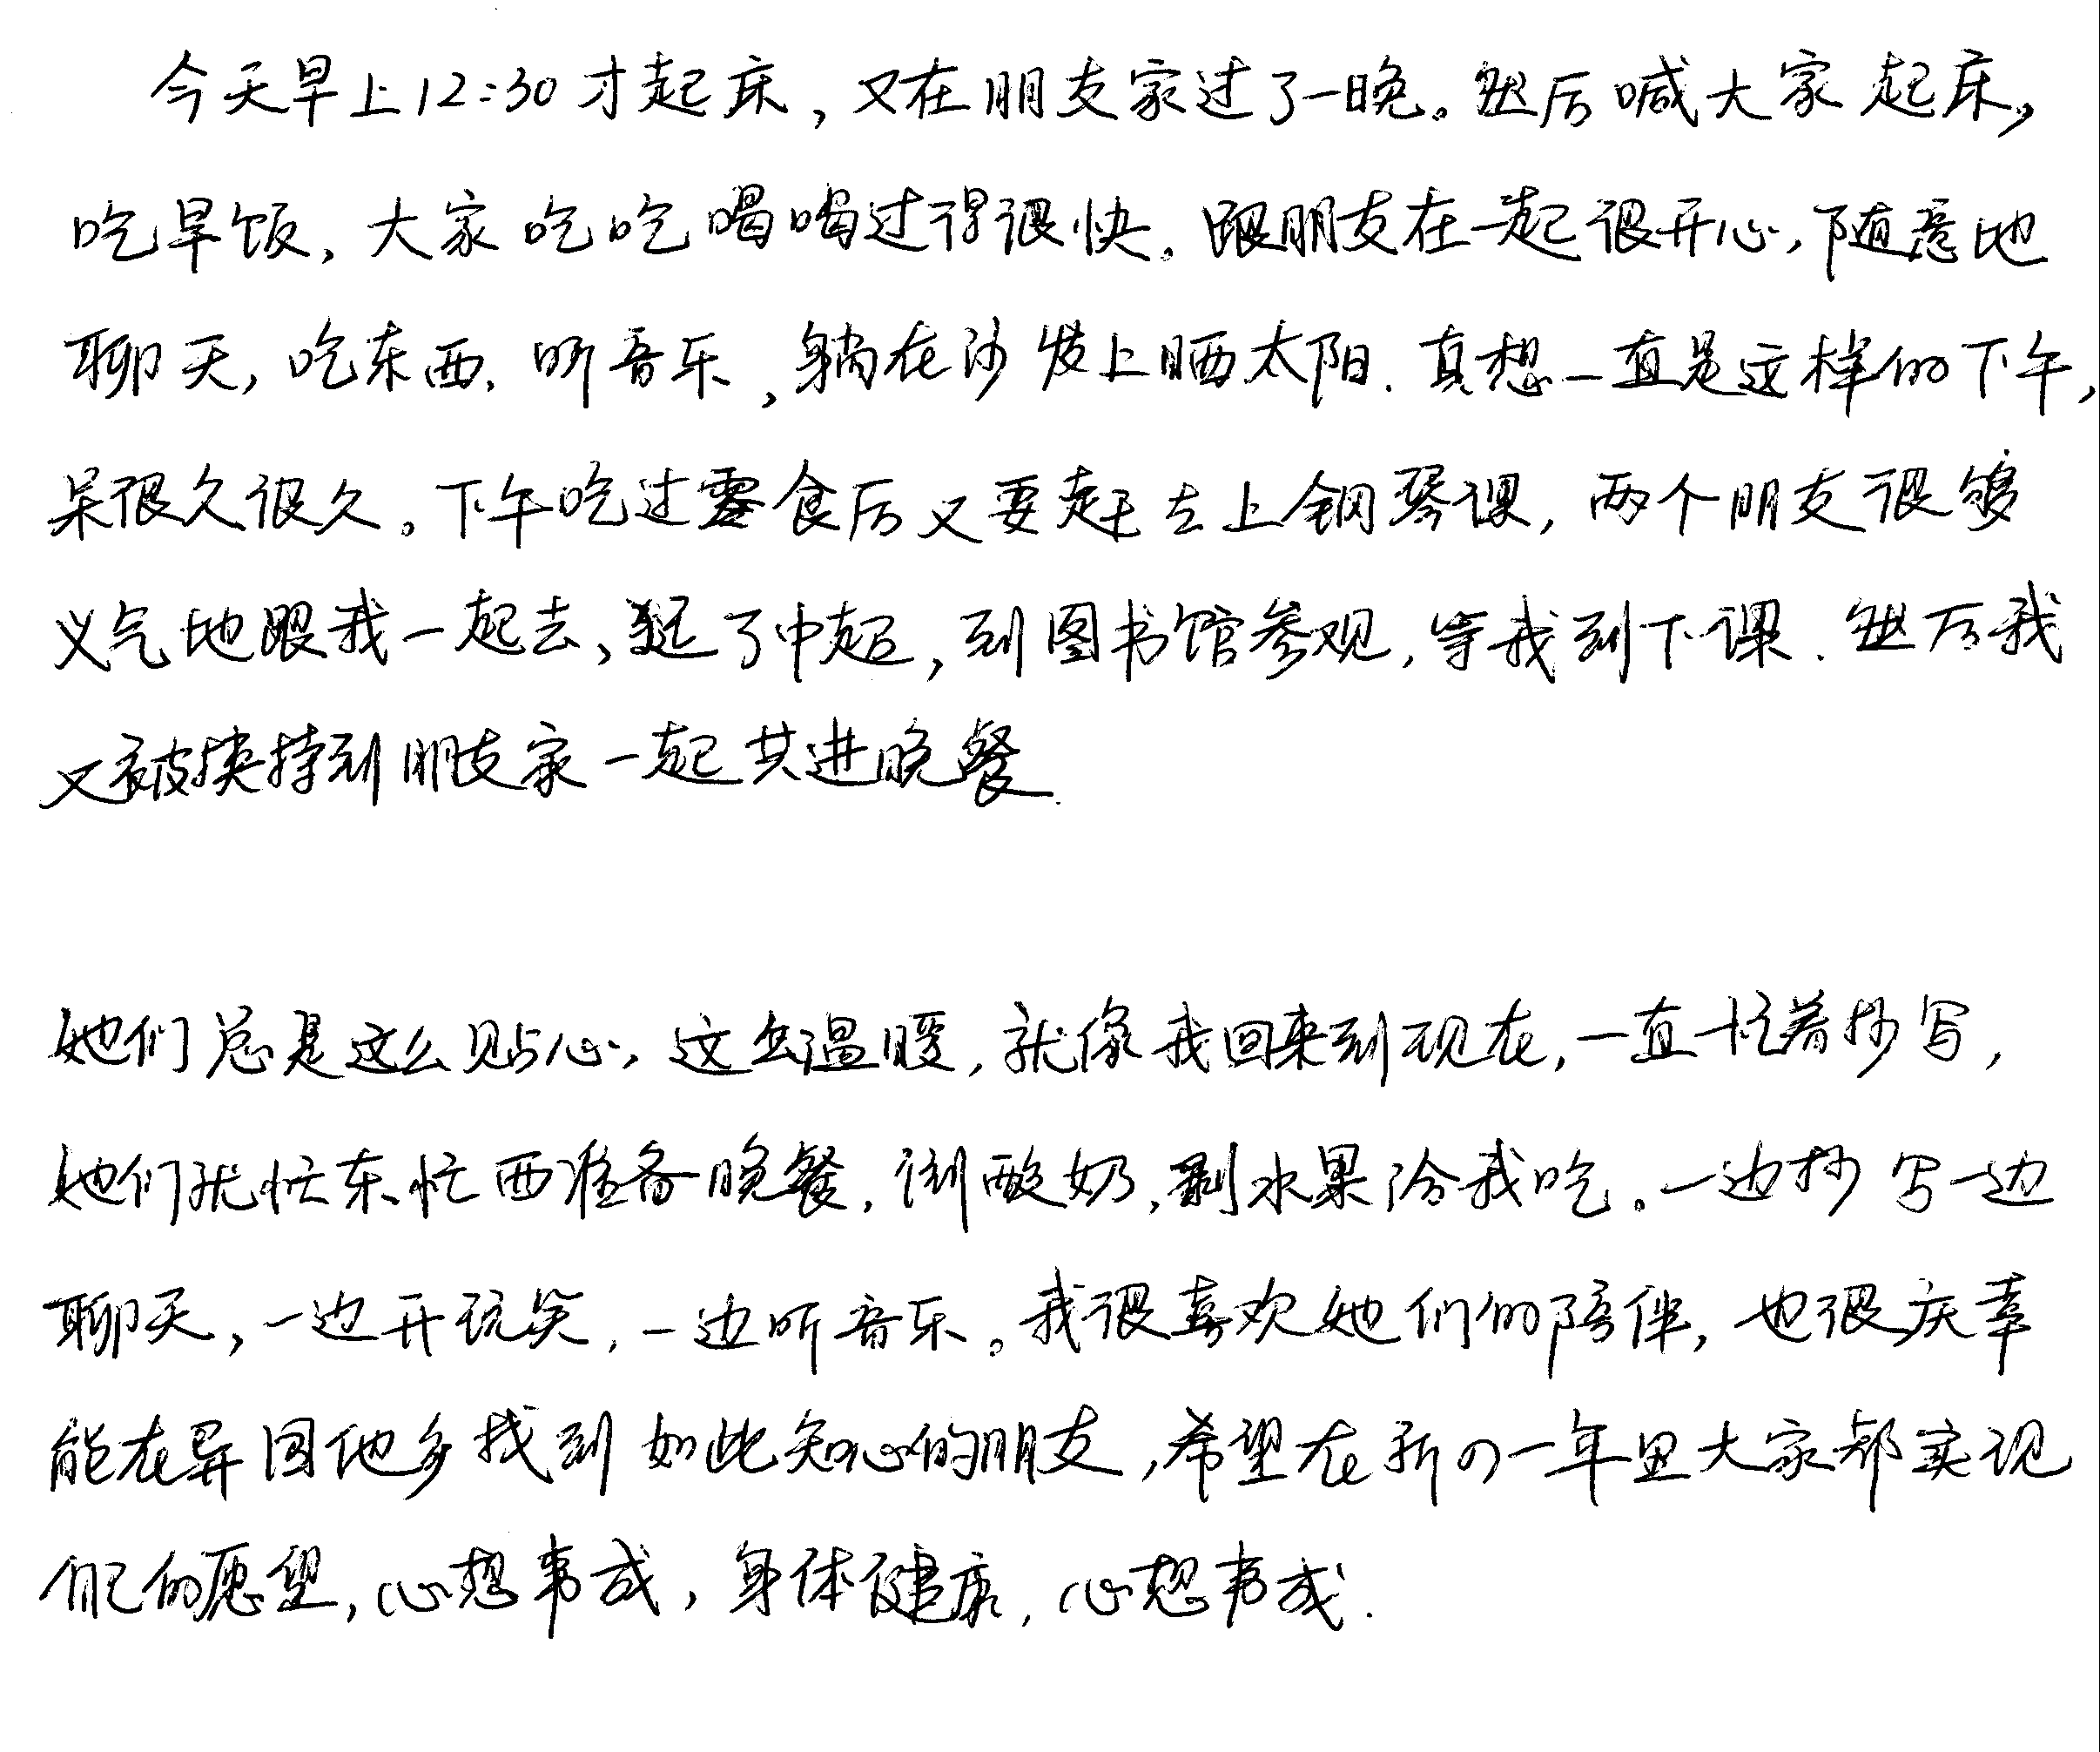 今天早上12:30才起床,又在朋友家过了一晚。然后喊大家起床,
吃早饭,大家吃吃喝喝过得很快。跟朋友在一起很开心,随意地
聊天,吃东西,听音乐,躺在沙发上晒太阳.真想一直是这样的下午,
呆很久很久。下午吃过零食后又要赶去上钢琴课,两个朋友很够
义气地跟我一起去,逛了中超,到图书馆参观,等我到下课.然后我
又被挟持到朋友家一起共进晚餐.
她们总是这么贴心,这么温暖,就像我回来到现在,一直忙着抄写,
她们就忙东忙西准备晚餐,倒酸奶,剥水果给我吃。一边抄写一边
聊天,一边开玩笑,一边听音乐。我很喜欢她们的陪伴,也很庆幸
能在异国他乡找到如此知心的朋友,希望在新の一年里大家都实现
自己的愿望,心想事成,身体健康,心想事成.